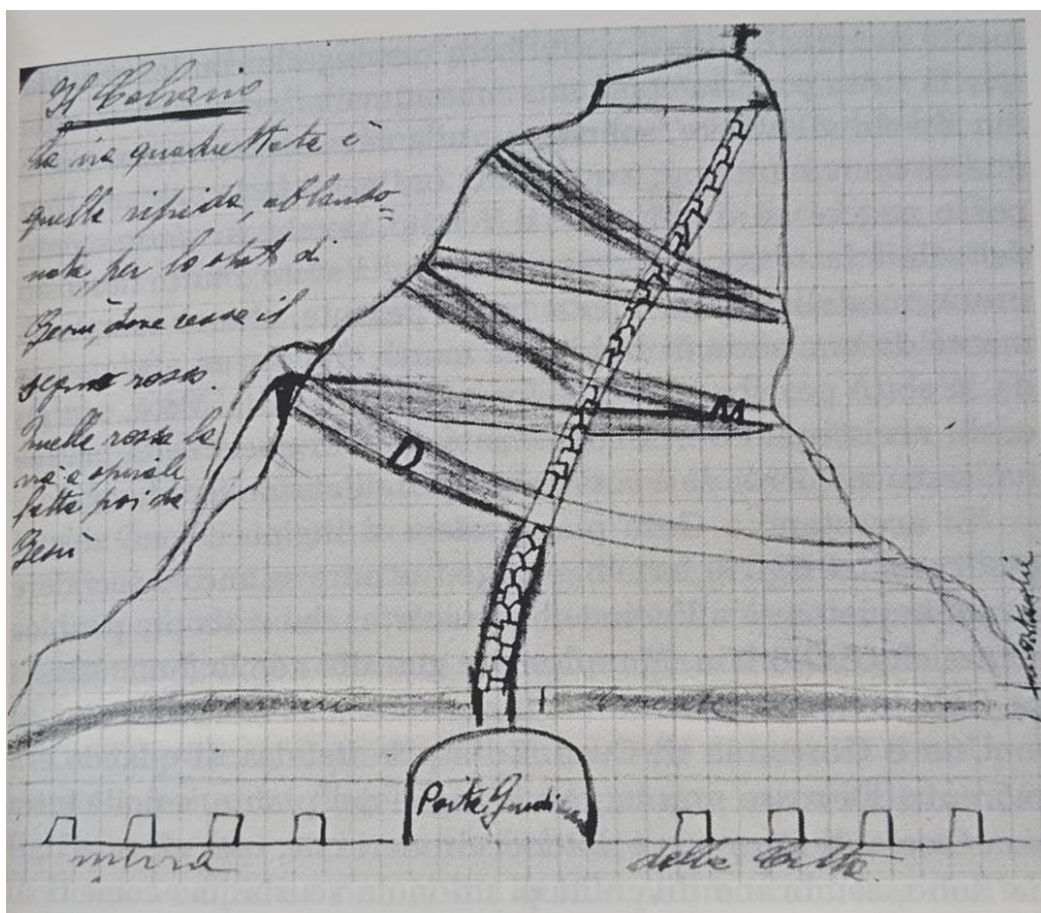 Il Calvario
La via quadrettata è
quella ripida, abbando=
nata per lo stato di
Gesù, dove cessa il
segno rosso.
Quella rossa la
via a spirale
fatta poi da
Gesù
M
D
torrente
Porta Giudiz.
mura
della Città